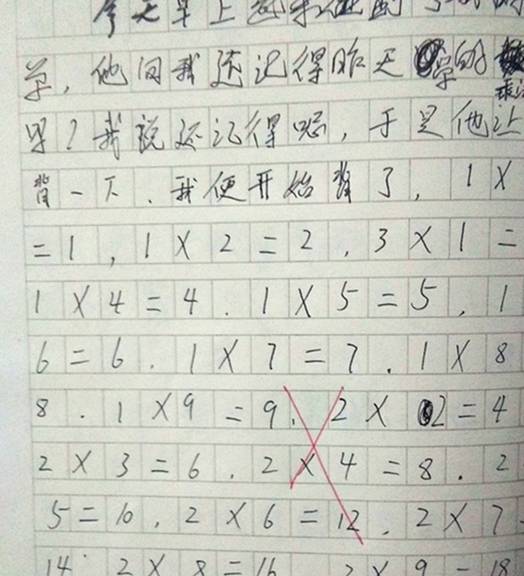 今天早上起来
学，他问我还记得昨天学的乘法
吗？我说还记得呢，于是他让
背一下．我便开始背了，1×
=1，1×2=2．3×1=
1×4=4．1×5=5．1
6=6．1×7=7．1×8
8．1×9=9．2×2=4
2×3=6．2×4=8．2
5=10．2×6=12．2×7
14．2×8=16．2×9=18